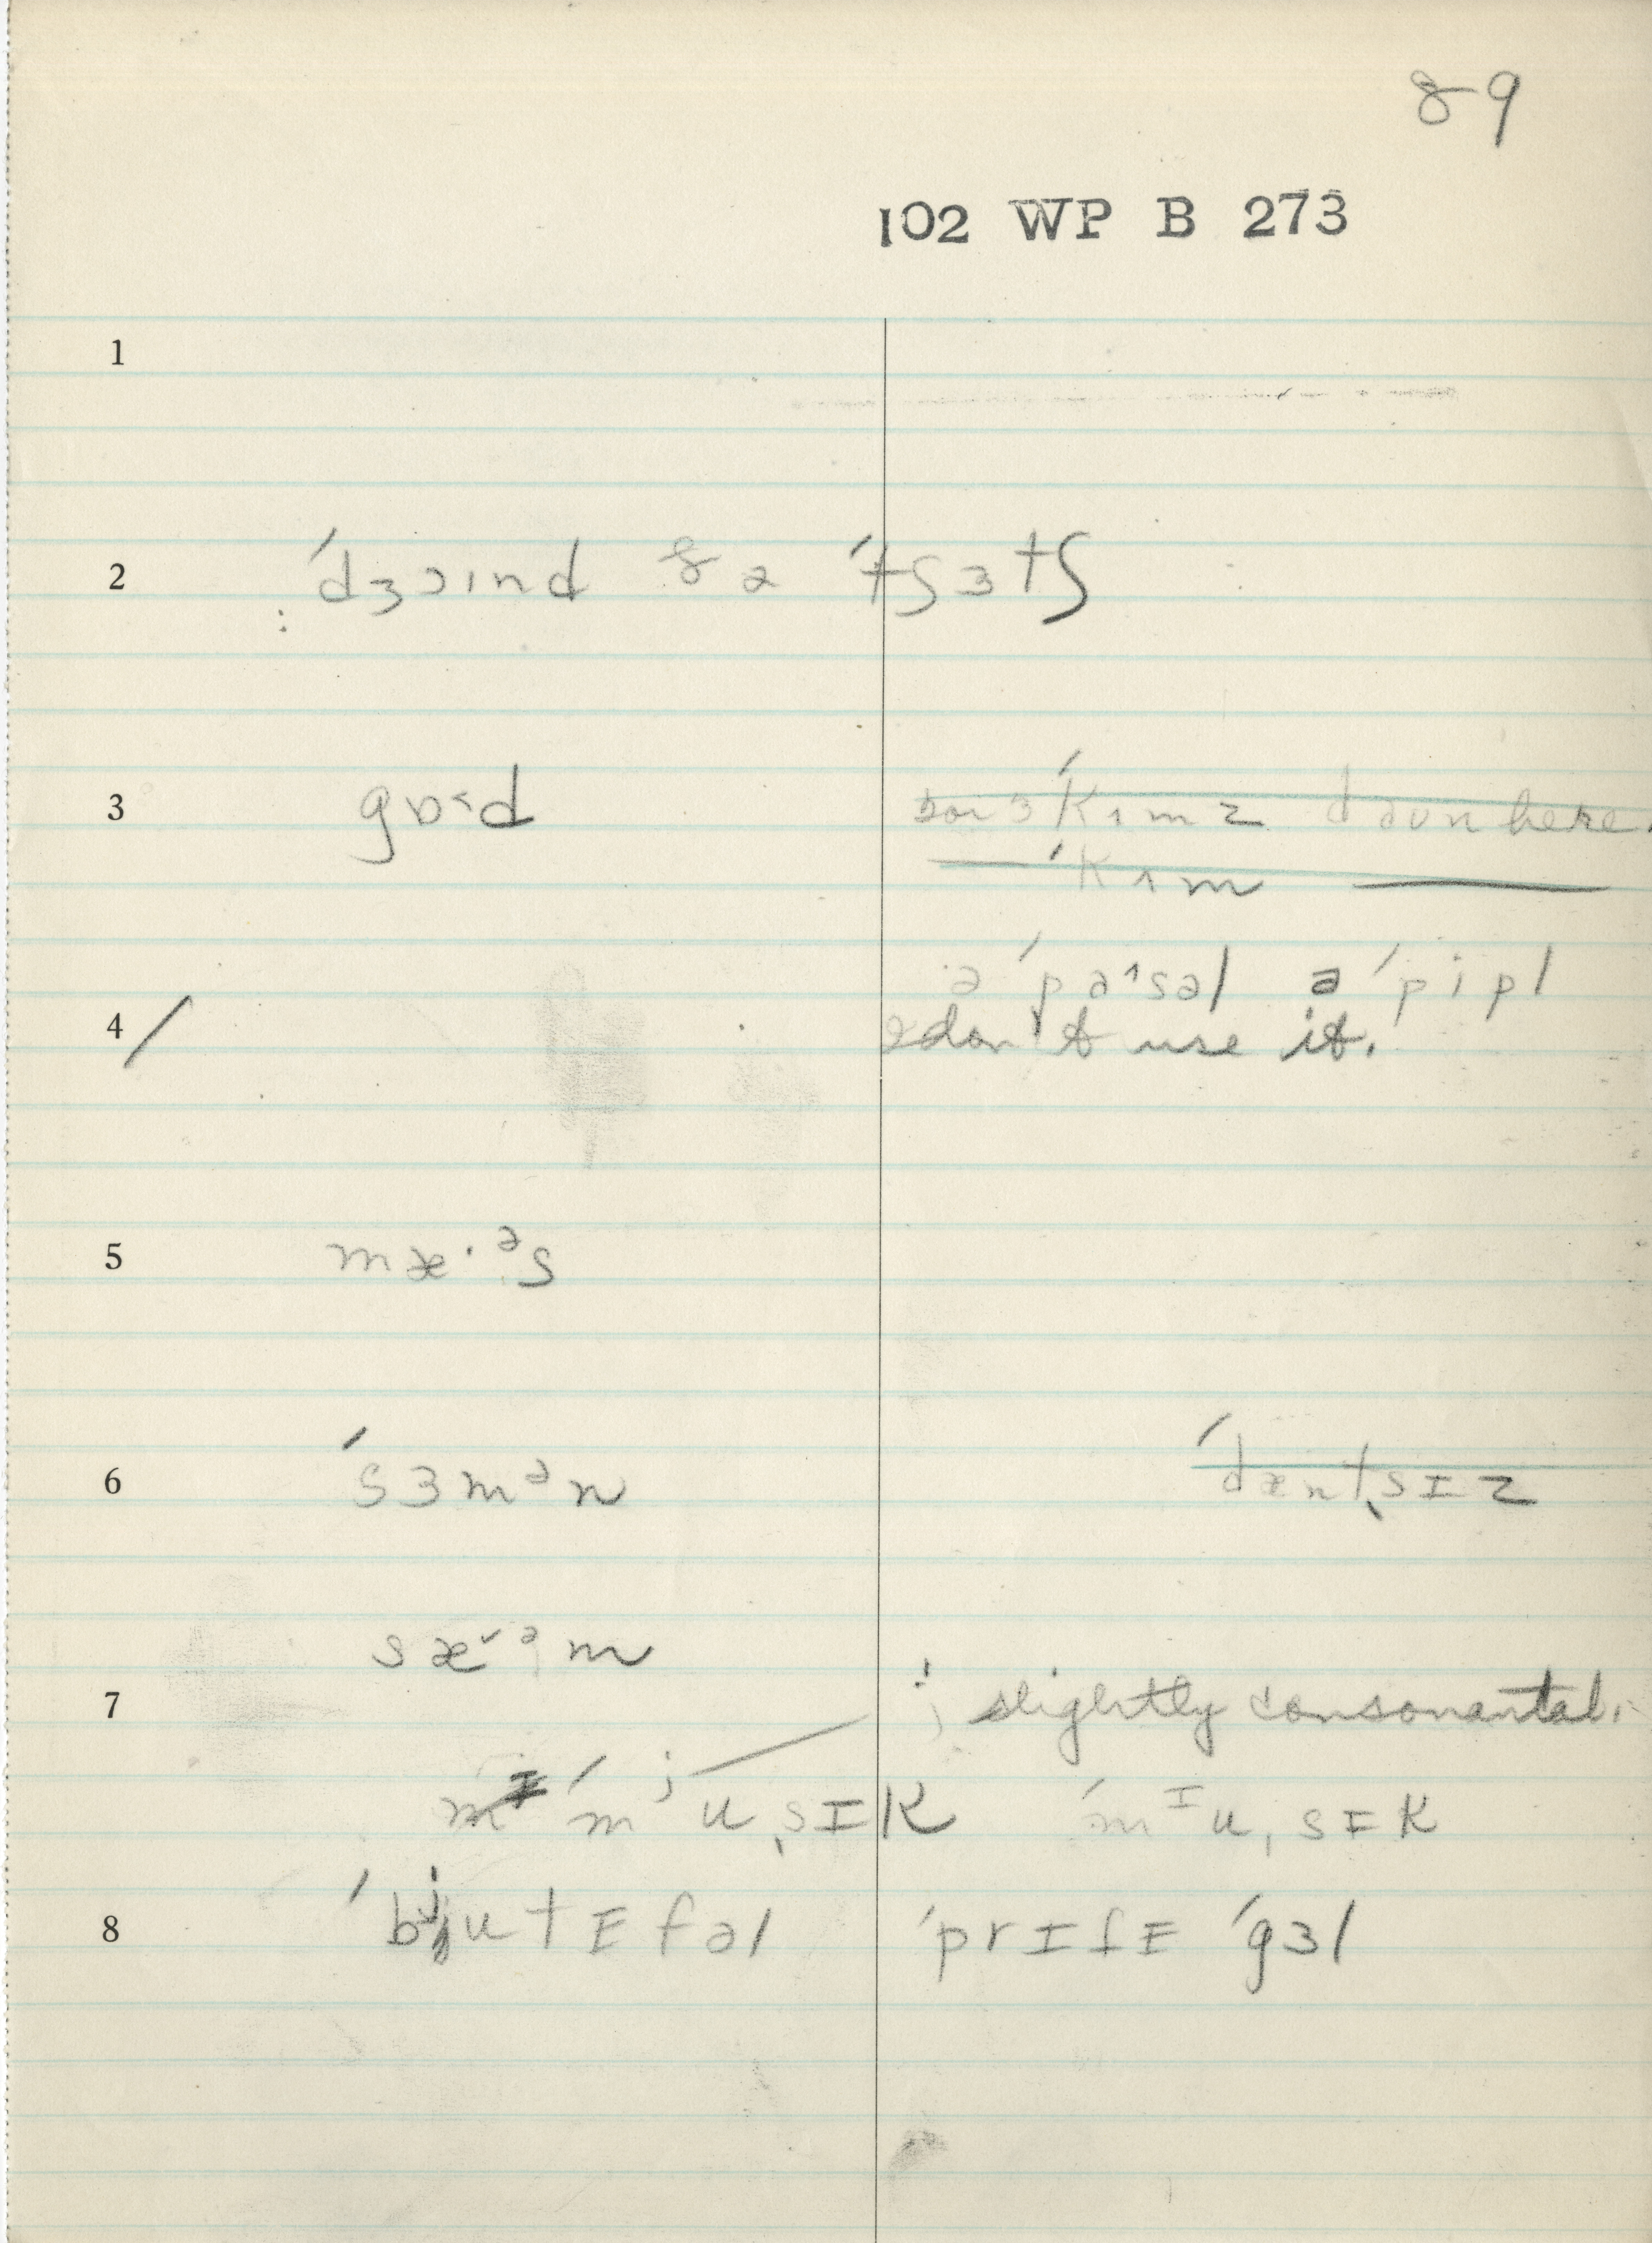 89
102 WP B 273
1
2 : ˈdʒɔɪnd ðə ˈtʃɜtʃ
3 gɒ˂d
ˈkʌmz daun here.
—— ˈkʌm ——
ə ˈpɑ˄səl ə ˈpipl
4 / don't use it.
5 mæ·ᵊs
6 ˈsɜmᵊn ˈdænˌsɪz
sæ˅ᵊm
7 j slightly consonantal.
ˈmʲuˌsɪk ˈmᶦuˌsɪk
8 ˈbʲutᵻfəl ˈprɪfᵻ ˈgɜl